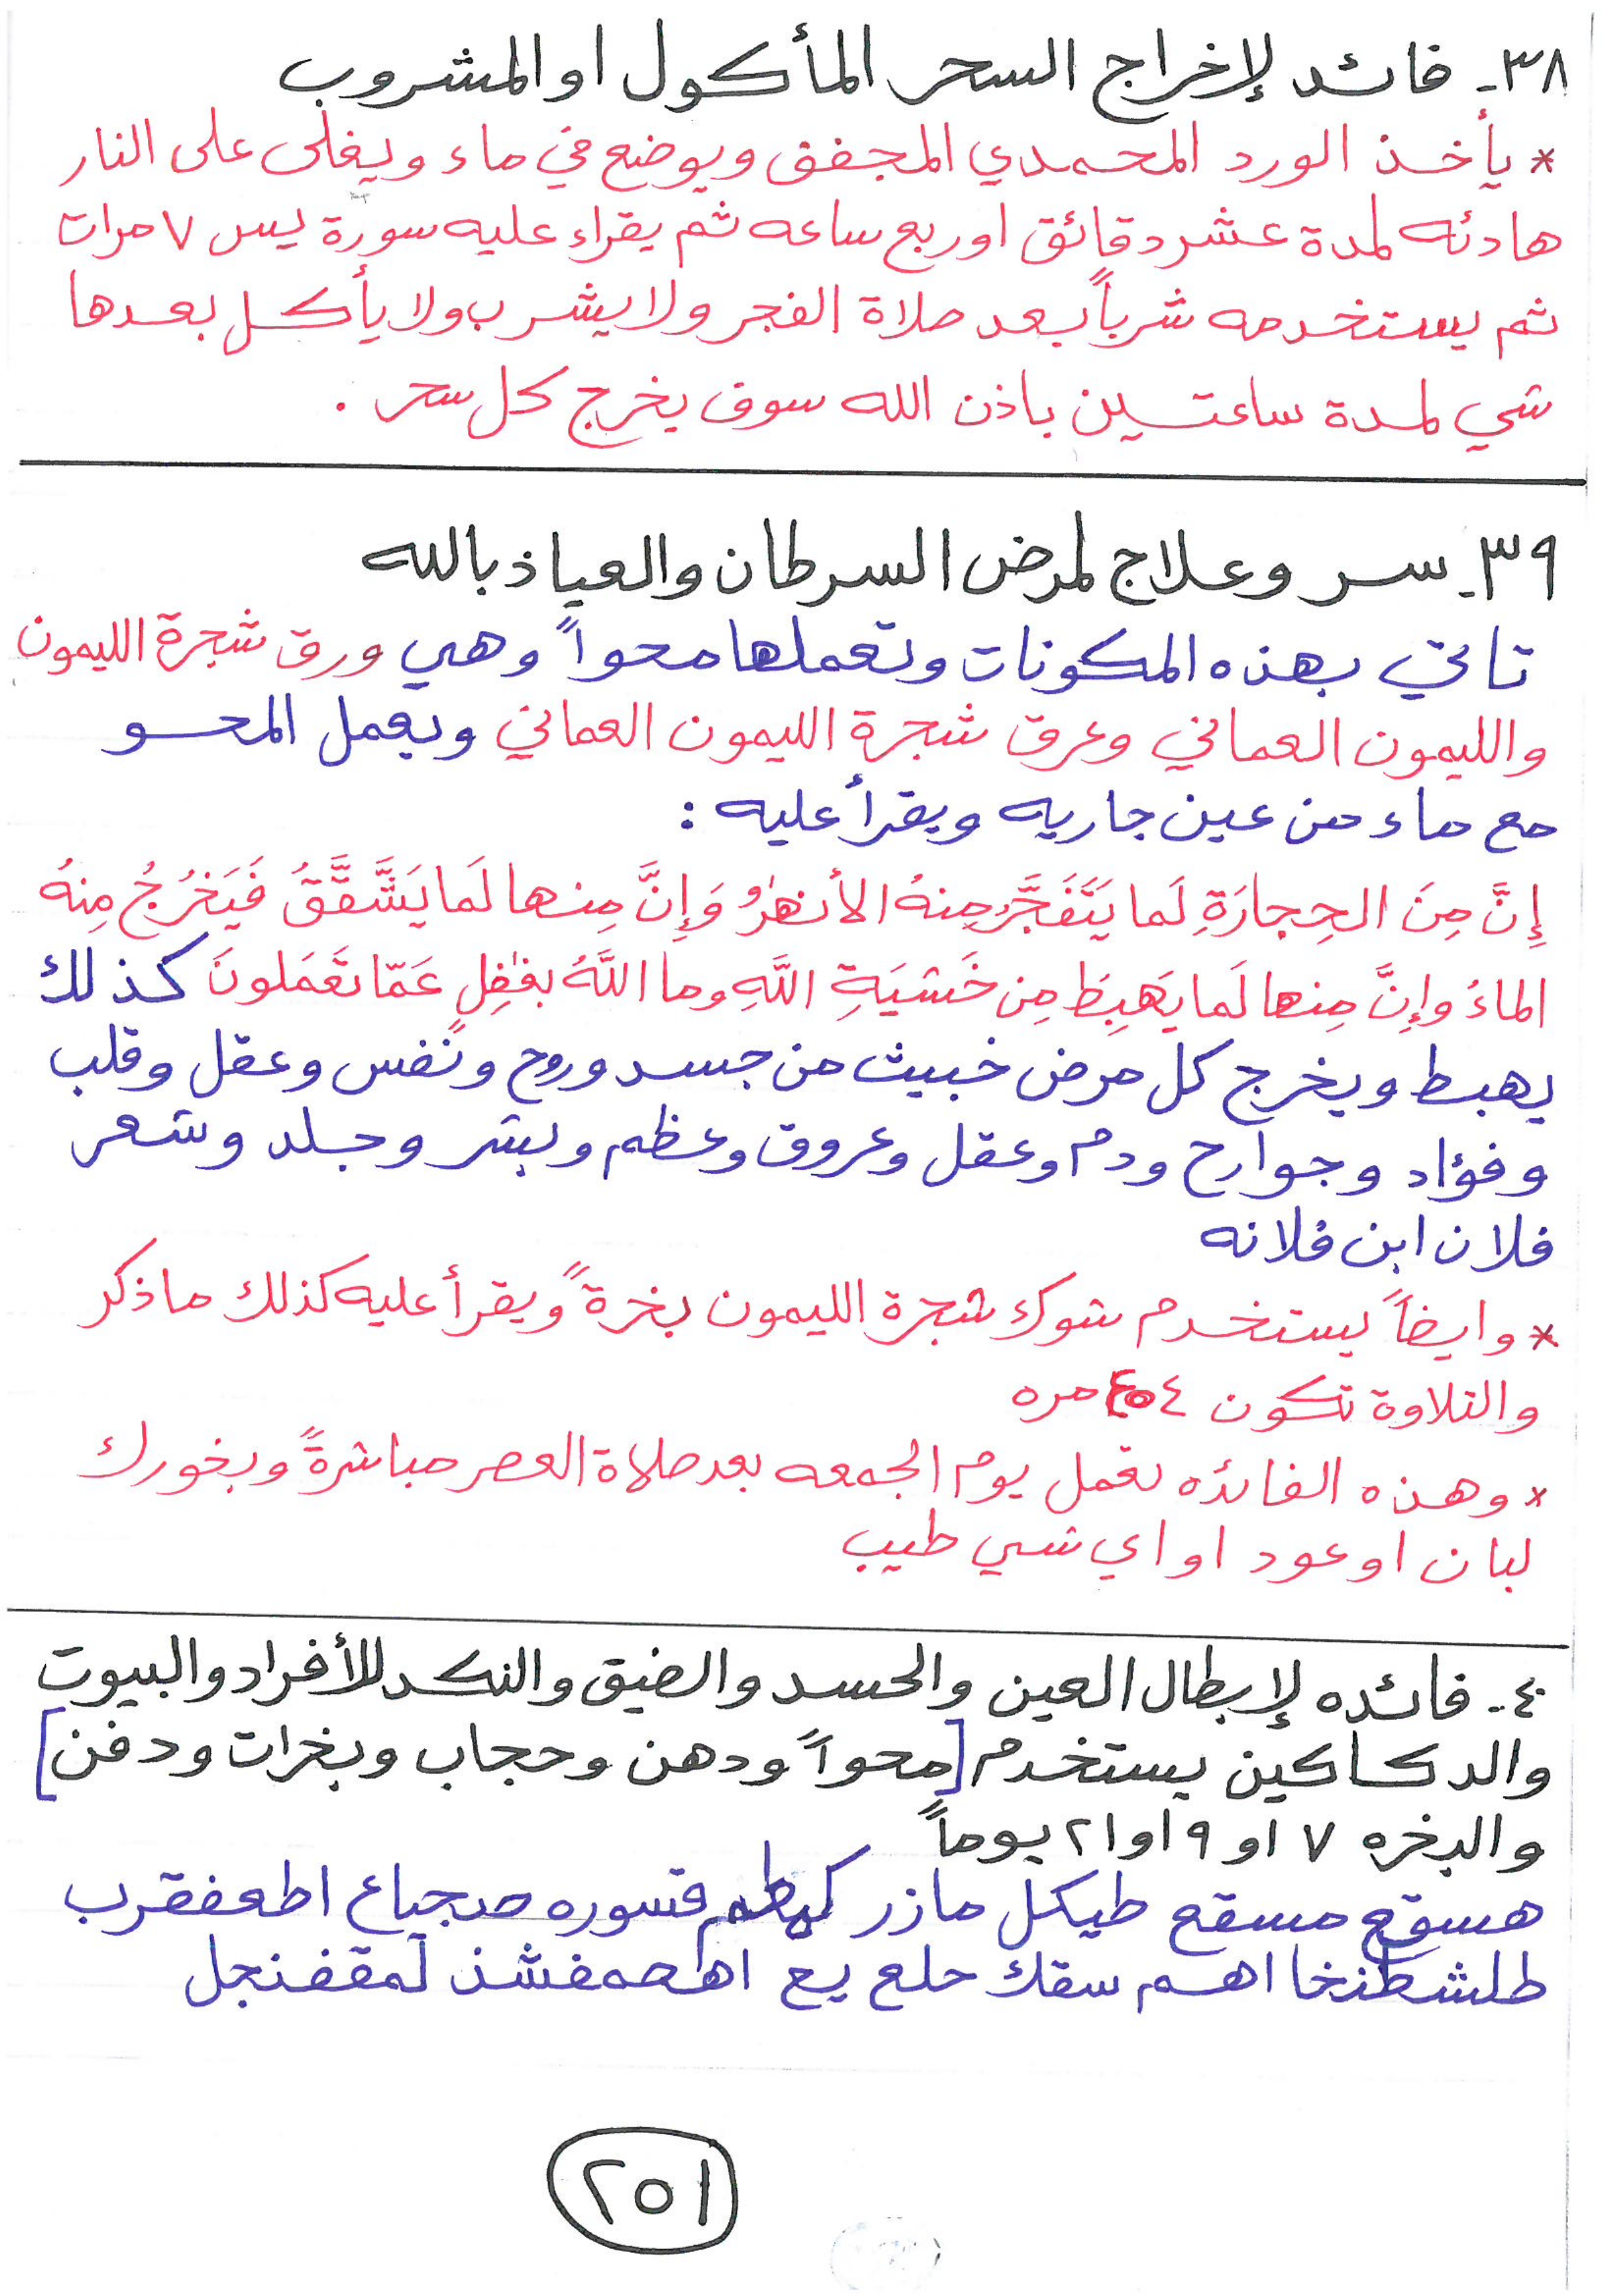 ٣٨- فائده لإخراج السحر المأكول او المشروب
* يأخذ الورد المحمدي المجفف ويوضع في ماء ويغلى على النار
هادئه لمدة عشر دقائق او ربع ساعه ثم يقراء عليه سورة يس ٧ مرات
ثم يستخدمه شرباً بعد صلاة الفجر ولا يشرب ولا يأكل بعدها
شي لمدة ساعتين باذن الله سوف يخرج كل سحر .
٣٩- سر وعلاج لمرض السرطان والعياذ بالله
تاتي بهذه المكونات وتعملها محواً وهي ورق شجرة الليمون
والليمون العماني وعرق شجرة الليمون العماني ويعمل المحو
مع ماء من عين جاريه ويقرأ عليه :
إِنَّ مِنَ الحِجارَةِ لَما يَتَفَجَّرُ مِنهُ الأَنهٰرُ وَإِنَّ مِنها لَما يَشَّقَّقُ فَيَخرُجُ مِنهُ
الماءُ وَإِنَّ مِنها لَما يَهبِطُ مِن خَشيَةِ اللَّهِ وما اللَّهُ بِغٰفِلٍ عَمّا تَعمَلونَ كذلك
يهبط ويخرج كل مرض خبيث من جسد وروح ونفس وعقل وقلب
وفؤاد وجوارح ودم وعقل وعروق وعظم وبشر وجلد وشعر
فلان ابن فلانه
* وايضاً يستخدم شوك شجرة الليمون بخرةً ويقرأ عليه كذلك ماذكر
والتلاوة تكون مره
* وهذه الفائده تعمل يوم الجمعه بعد صلاة العصر مباشرةً وبخورك
لبان او عود او اي شي طيب
٤٠- فائده لإبطال العين والحسد والضيق والنكد للأفراد والبيوت
والدكاكين يستخدم [محواً ودهن وحجاب وبخرات ودفن]
والبخره ٧ او ٩ او ٢١ يوماً
هسقع مسقع طيكل مازر قسوره اطعفقرب
طلشطنخا اهم سقك حلع يع لمقفنجل
٢٥١